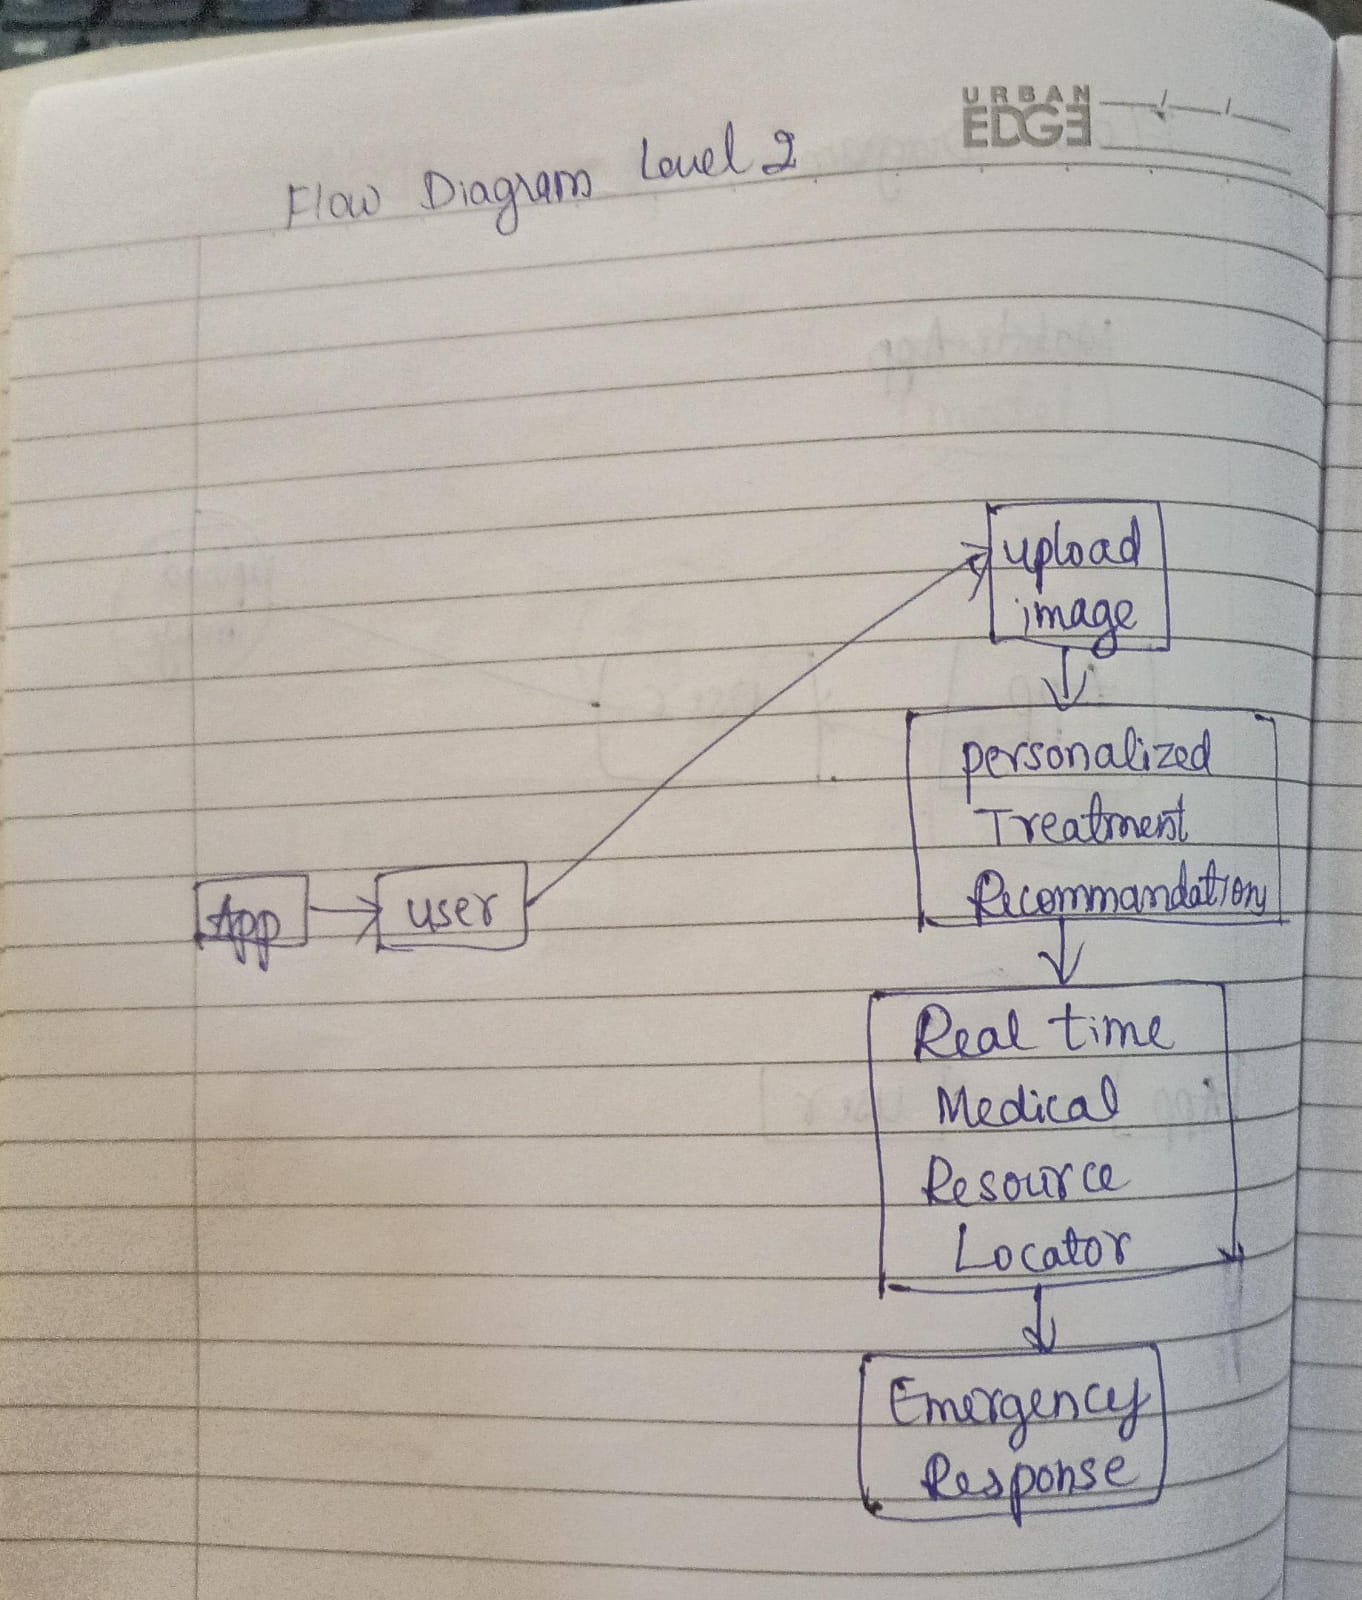 URBAN
EDGE
Flow Diagram Level 2
upload
image
personalized
Treatment
Recommandation
App
user
Real time
Medical
Resource
Locator
Emergency
Response